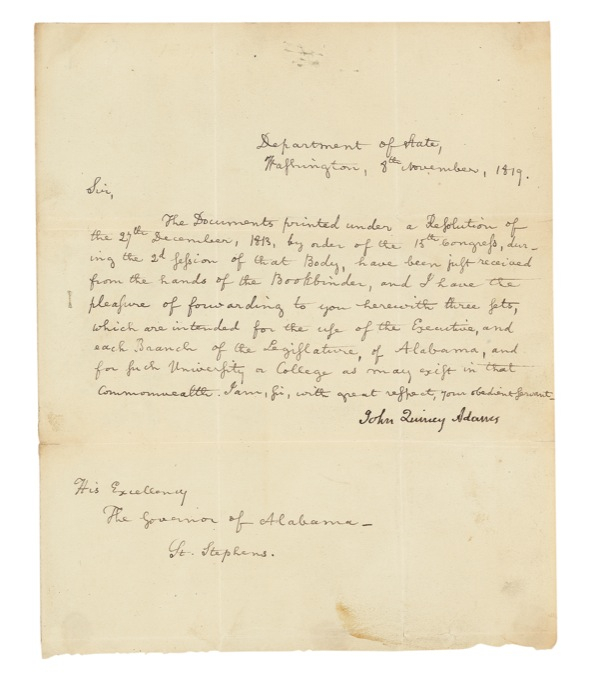 Department of State,
Washington, 8th November, 1819.
Sir,
The Documents printed under a Resolution of
the 27th December, 1813, by order of the 15th Congress, dur-
ing the 2d Session of that Body, have been just received
from the hands of the Bookbinder, and I have the
pleasure of forwarding to you herewith three sets,
which are intended for the use of the Executive, and
each Branch of the Legislature, of Alabama, and
for such University or College as may exist in that
Commonwealth. I am, Sir, with great respect, your obedient servant—
John Quincy Adams
His Excellency
The Governor of Alabama—
St. Stephens.